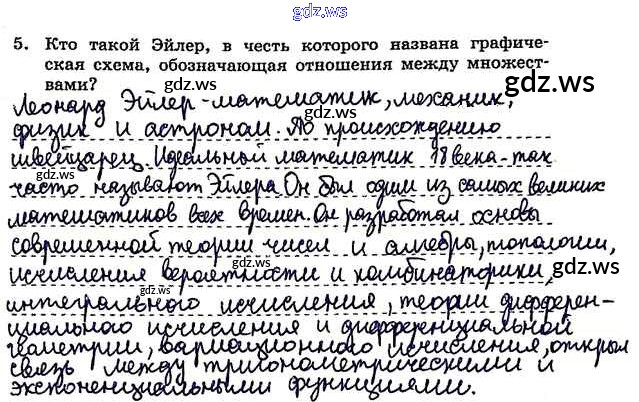 gdz.ws
5. Кто такой Эйлер, в честь которого названа графиче-
ская схема, обозначающая отношения между множест-
вами?
gdz.ws
gdz.ws
Леонард Эйлер - математик, механик,
физик и астроном. По происхождению
gdz.ws
швейцарец. Идеальный математик 18 века - так
часто называют Эйлера. Он был один из самых великих
математиков всех времен. Он разработал основы
современной теории чисел и алгебры, топологии,
gdz.ws
исчисления вероятности и комбинаторики,
gdz.ws
интегрального исчисления, теории дифферен-
циального исчисления и дифференциальной
геометрии, вариационного исчисления, открыл
связь между тригонометрическими и
экспоненциальными функциями.
gdz.ws